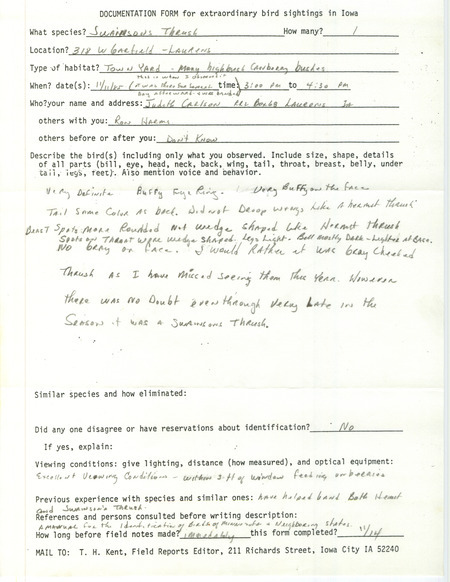 DOCUMENTATION FORM for extraordinary bird sightings in Iowa
What species? Swainsons Thrush How many? 1
Location? 318 W Garfield - Laurens
Type of habitat? Town Yard - Many highbush Cranberry bushes
This is when I
When? date(s): time: 3:00 PM to 4:30 PM
Who? your name and address: Judith Carlson RR2 Laurens Ia
others with you: Ron Harms
others before or after you: Don't Know
Describe the bird(s) including only what you observed. Include size, shape, details
of all parts (bill, eye, head, neck, back, wing, tail, throat, breast, belly, under
tail, legs, feet). Also mention voice and behavior.
Very Definite Buffy Eye Ring. Very Buffy on the Face
Tail Same Color as back. Did not Droop wings Like A hermit thrush
Breast Spots more Rounded Not wedge shaped like Hermit thrush
Spots on Throat were wedge shaped. Legs Light. Bill mostly Dark - Lighter at Base.
NO Gray on Face. I would Rather it was Gray Cheeked
Thrush as I have missed seeing them this Year. However
there was no Doubt even through Very Late in the
Season it was a Swainsons Thrush.
Similar species and how eliminated:
Did any one disagree or have reservations about identification? No
If yes, explain:
Viewing conditions: give lighting, distance (how measured), and optical equipment:
Excellent Viewing Conditions - within 2 ft of window feeding on berries
Previous experience with species and similar ones: have helped band Both Hermit
and Swainson's Thrush.
References and persons consulted before writing description:
A manual for the Identification of Birds of Minnesota & Neighboring states.
How long before field notes made? immediately this form completed? 11/24
MAIL TO: T. H. Kent, Field Reports Editor, 211 Richards Street, Iowa City IA 52240